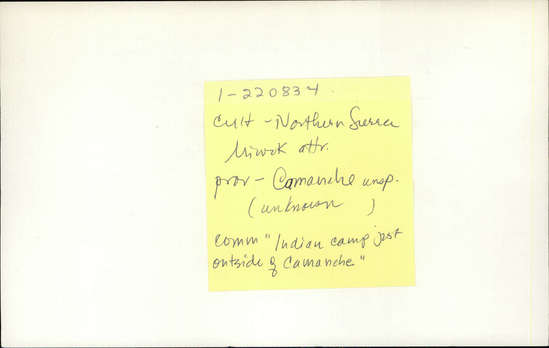 1-220834
Cult - Northern Sierra
Miwok attr.
prov - Camanche unsp.
(unknown )
comm "Indian camp just
outside of Camanche"